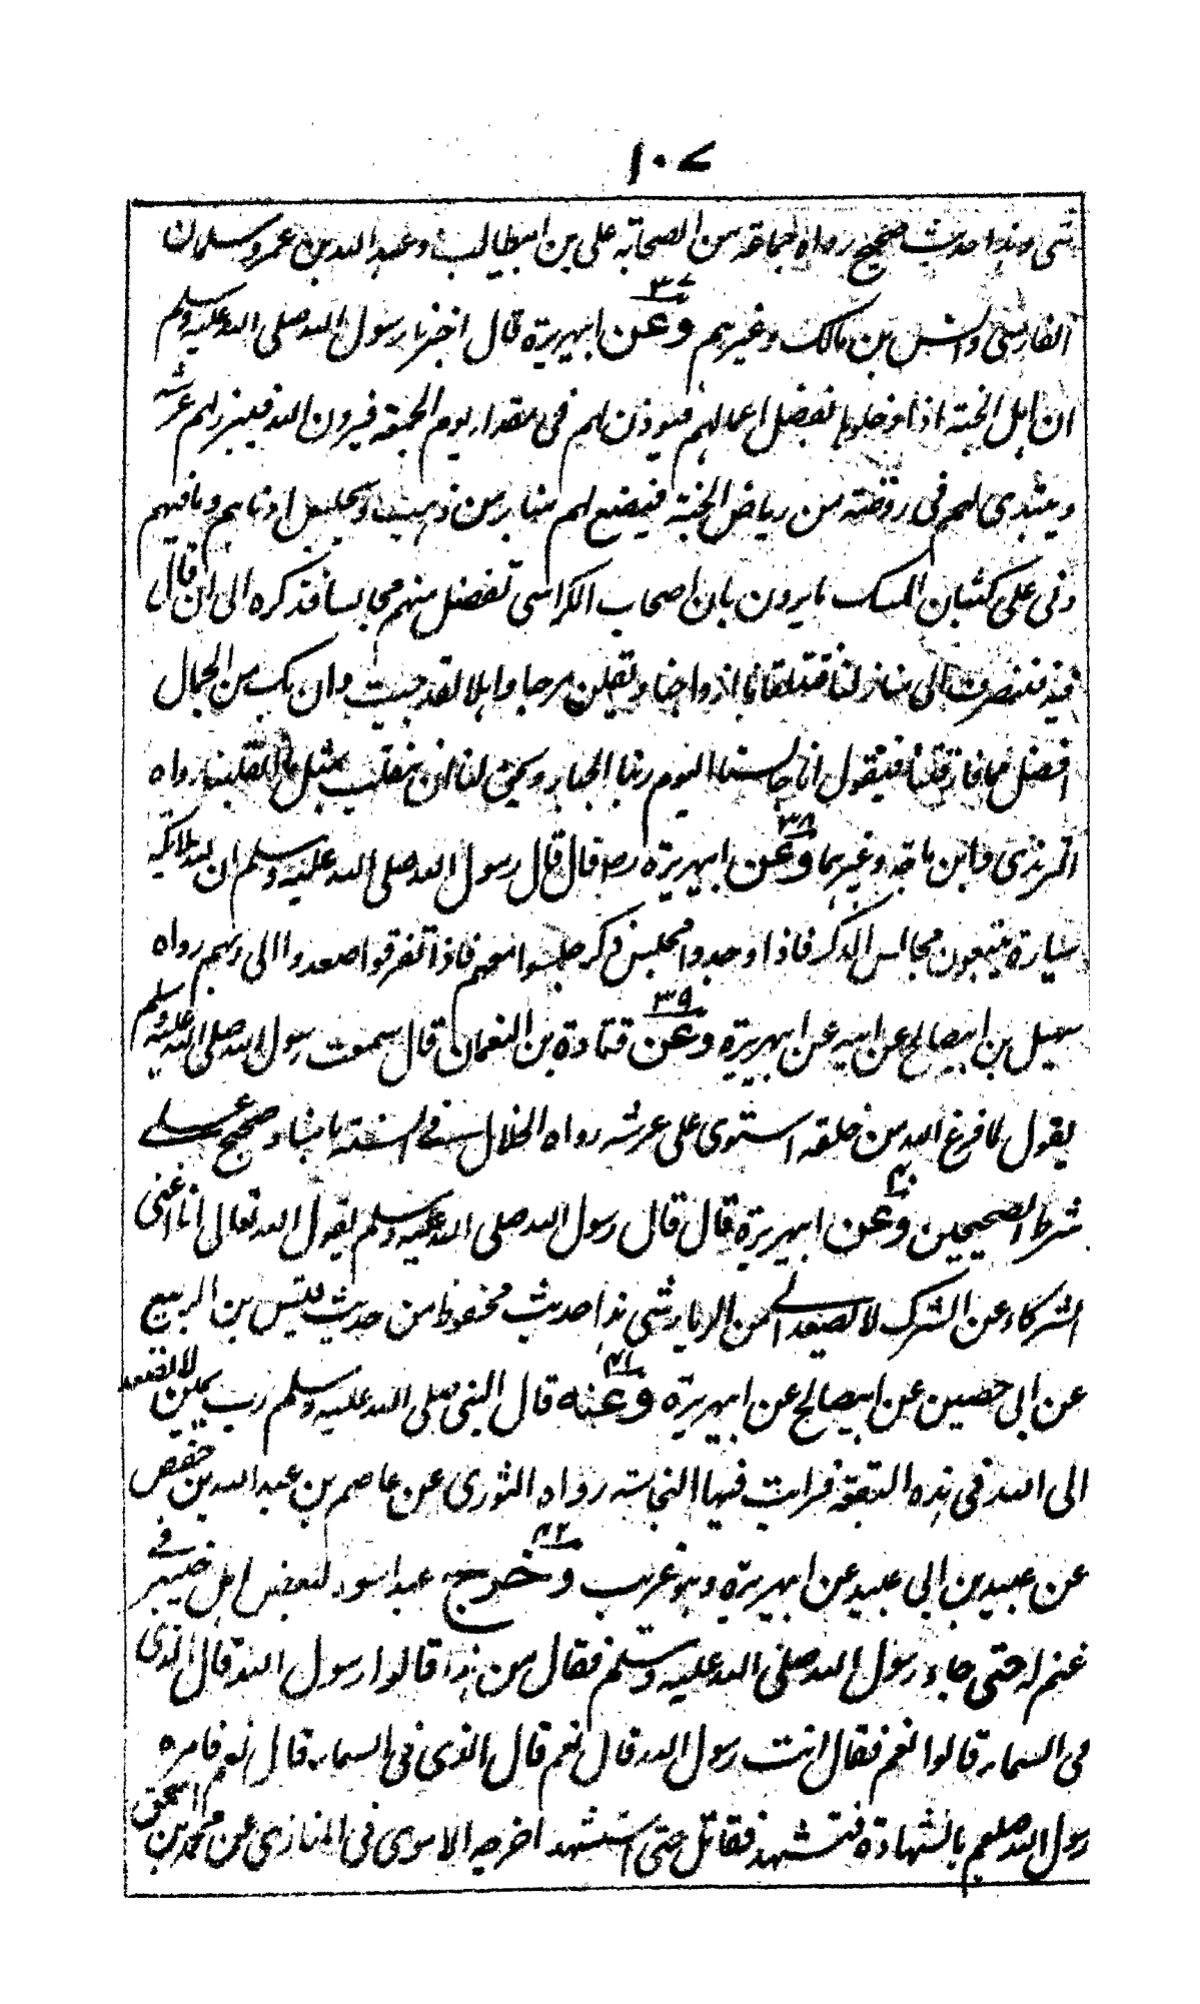 ١٠٧
شئ وهذا حديث صحيح رواه جماعة من الصحابة على بن ابيطالب وعبد الله بن عمرو سلمان
الفارسى وانس بن مالك وغيرهم ٣٧ وعن ابيهريرة قال اخبرنا رسول الله صلى الله عليه وسلم
ان اهل الجنة اذا دخلوها بفضل اعمالهم فيوذن لهم فى مقدار يوم الجمعة فيرون الله فيبرز لهم عرشه
ويتبدى لهم فى روضة من رياض الجنة فيضع لهم منابر من ذهب ويجلس ادناهم وما فيهم
دنى على كثبان المسك ما يرون بان اصحاب الكراسى تفضل منهم مجالسا فذكره الى ان قال
فيه فننصرف الى منازلنا فتتلقانا ازواجنا ويقلن مرحبا واهلا لقد جيت وان بك من الجمال
افضل مما فارقتنا فيقول انا جالسنا اليوم ربنا الجبار ويحق لنا ان ننقلب بمثل ما انقلبنا رواه
الترمذى وابن ماجه وغيرهما ٣٨ وعن ابيهريرة رض قال قال رسول الله صلى الله عليه وسلم ان لله ملائكة
سيارة يتبعون مجالس الذكر فاذا وجدوا مجلس ذكر جلسوا معهم فاذا تفرقوا صعدوا الى ربهم رواه
سهيل بن ابيصالح عن ابيه عن ابيهريرة ٣٩ وعن قتادة بن النعمان قال سمعت رسول الله صلى الله عليه وسلم
يقول لما فرغ الله من خلقه استوى على عرشه رواه الخلال فى السنة باسناد صحيح على
شرط الصحيحين ٤٠ وعن ابيهريرة قال قال رسول الله صلى الله عليه وسلم يقول الله تعالى انا اغنى
الشركاء عن الشرك لا يصعد الى من الرياء شئ هذا حديث محفوظ من حديث قيس بن الربيع
عن ابى حصين عن ابيصالح عن ابيهريرة ٤١ وعنه قال النبى صلى الله عليه وسلم رب يمين لا تصعد
الى الله فى هذه البقعة فرايت فيها النخاسة رواه الثورى عن عاصم بن عبد الله بن حفص
عن عبيد بن ابى عبيد عن ابيهريرة وهو غريب ٤٢ وخرج عبد اسود لبعض اهل خيبر فى
غنم له حتى جاء رسول الله صلى الله عليه وسلم فقال من هذا قالوا رسول الله قال الذى
فى السماء قالوا نعم فقال انت رسول الله قال نعم قال الذى فى السماء قال نعم فامره
رسول الله صلعم بالشهادة فتشهد فقاتل حتى استشهد اخرجه الاموى فى المغازى عن محمد بن اسحق